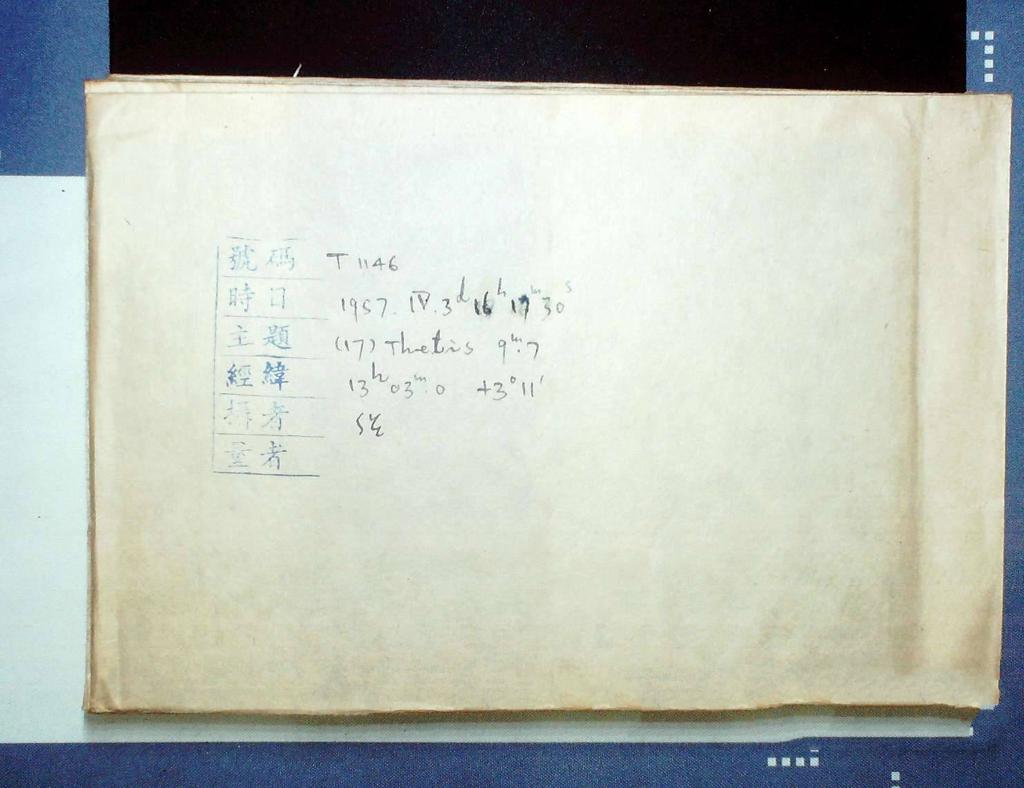 號碼 T 1146
時日 1957. IV. 3ᵈ 16ʰ 17ᵐ 30ˢ
主題 (17) Thetis 9ᵐ.7
經緯 13ʰ 03ᵐ.0 +3°11'
攝者
量者